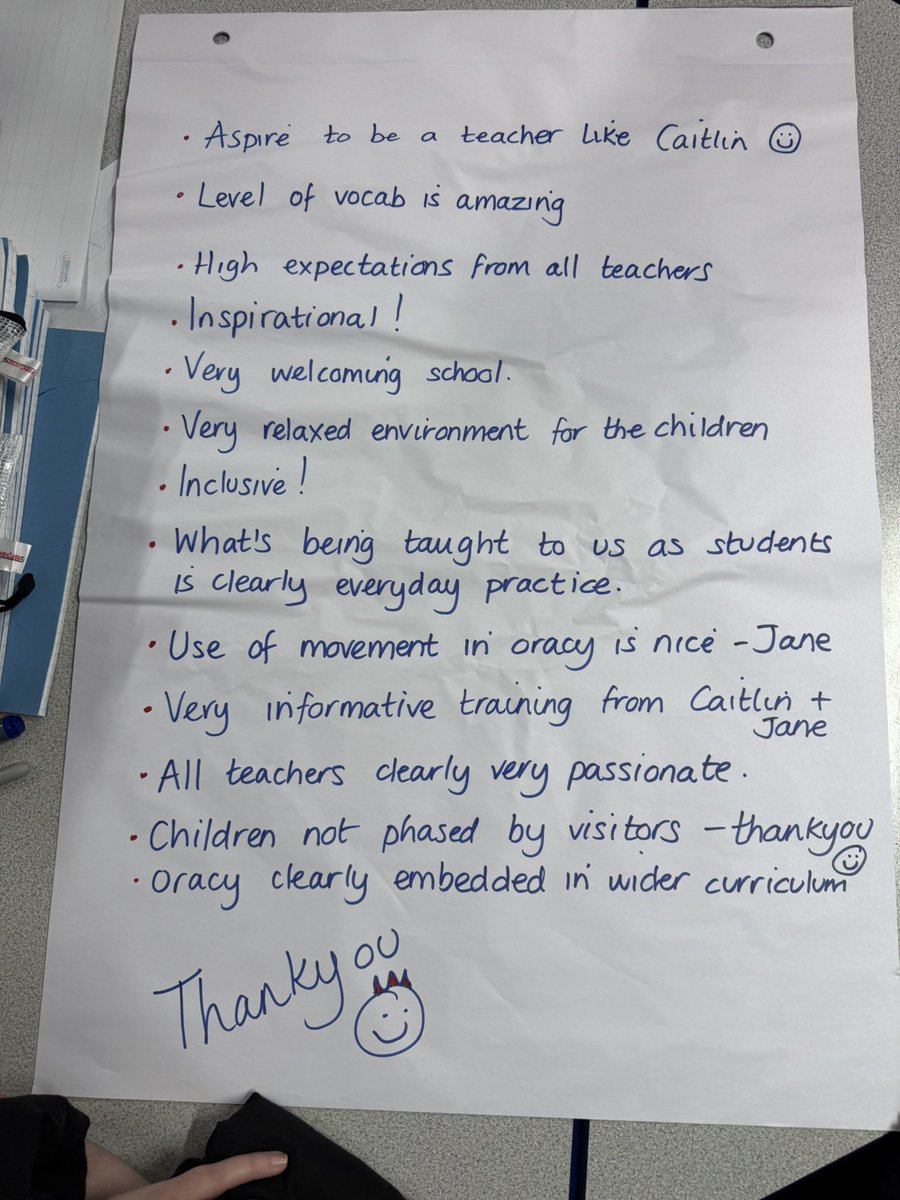 • Aspire to be a teacher like Caitlin ☺
• Level of vocab is amazing
• High expectations from all teachers
• Inspirational!
• Very welcoming school.
• Very relaxed environment for the children
• Inclusive!
• What's being taught to us as students
is clearly everyday practice.
• Use of movement in oracy is nice - Jane
• Very informative training from Caitlin +
Jane
• All teachers clearly very passionate.
• Children not phased by visitors - thankyou
☺
• Oracy clearly embedded in wider curriculum
Thankyou